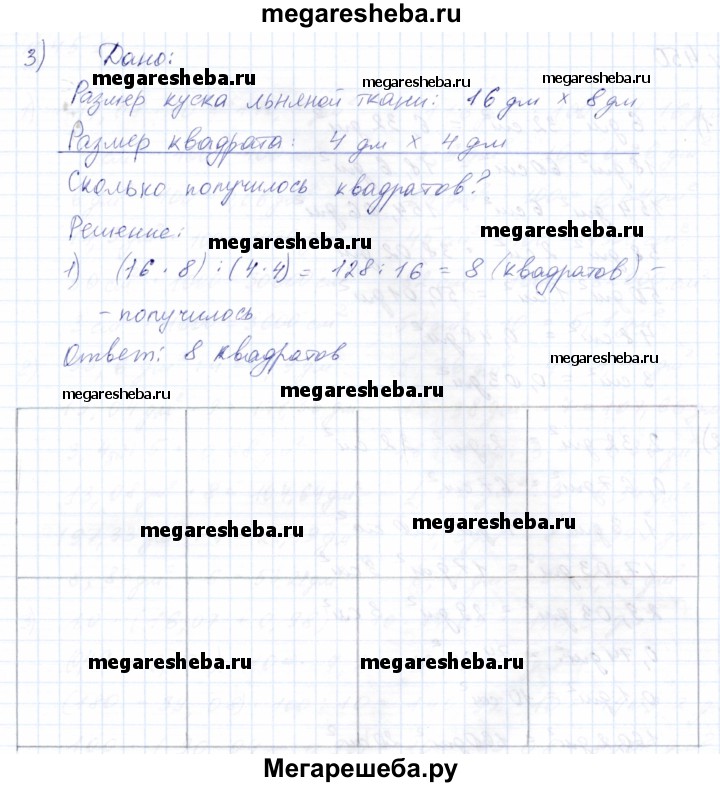 megaresheba.ru
3) Дано:
megaresheba.ru megaresheba.ru megaresheba.ru
Размер куска льняной ткани: 16 дм × 8 дм
Размер квадрата: 4 дм × 4 дм
Сколько получилось квадратов?
Решение:
megaresheba.ru megaresheba.ru
1) (16 · 8) : (4 · 4) = 128 : 16 = 8 (квадратов) -
- получилось
Ответ: 8 квадратов
megaresheba.ru
megaresheba.ru megaresheba.ru
megaresheba.ru megaresheba.ru
megaresheba.ru megaresheba.ru
Мегарешеба.ру